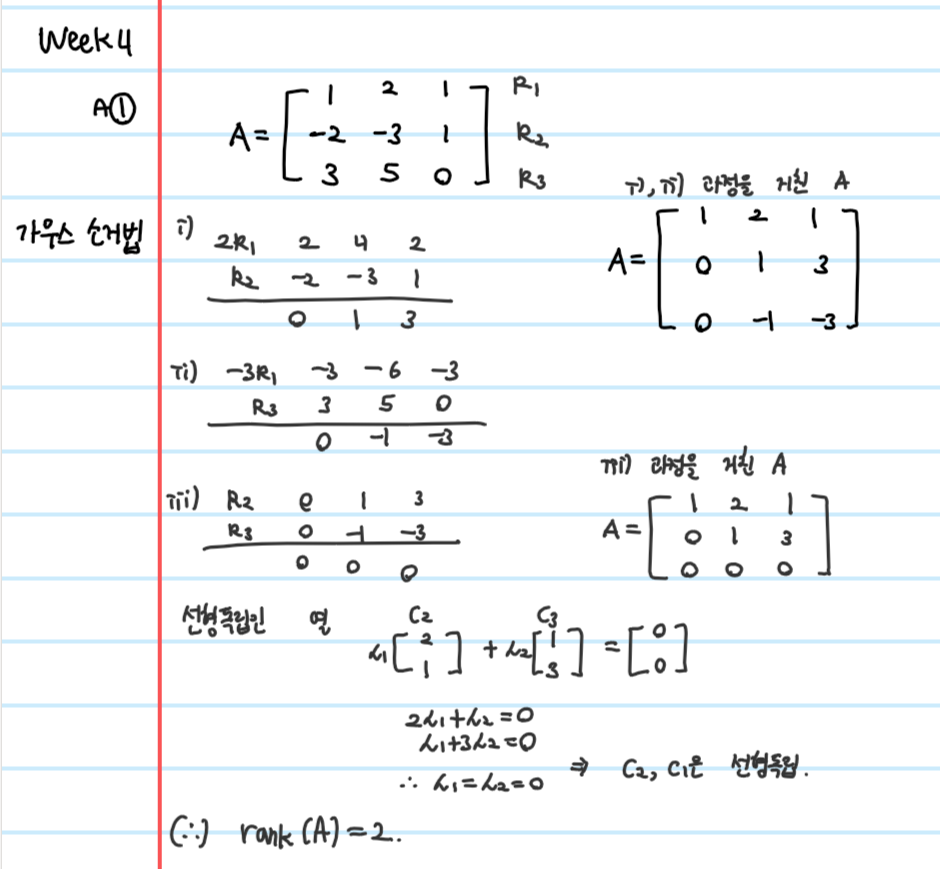 Week4
A①
A= [ 1 2 1 ] R1
[ -2 -3 1 ] R2
[ 3 5 0 ] R3
가우스 소거법
i) 2R1 2 4 2
R2 -2 -3 1
0 1 3
i), ii) 과정을 거친 A
A= [ 1 2 1 ]
[ 0 1 3 ]
[ 0 -1 -3 ]
ii) -3R1 -3 -6 -3
R3 3 5 0
0 -1 -3
iii) R2 0 1 3
R3 0 -1 -3
0 0 0
iii) 과정을 거친 A
A= [ 1 2 1 ]
[ 0 1 3 ]
[ 0 0 0 ]
선형독립인 열 C2 C3
λ1 [ 2 ] + λ2 [ 1 ] = [ 0 ]
[ 1 ] [ 3 ] [ 0 ]
2λ1+λ2=0
λ1+3λ2=0
∴ λ1=λ2=0 ⇒ C2, C1은 선형독립.
(∴) rank(A)=2.